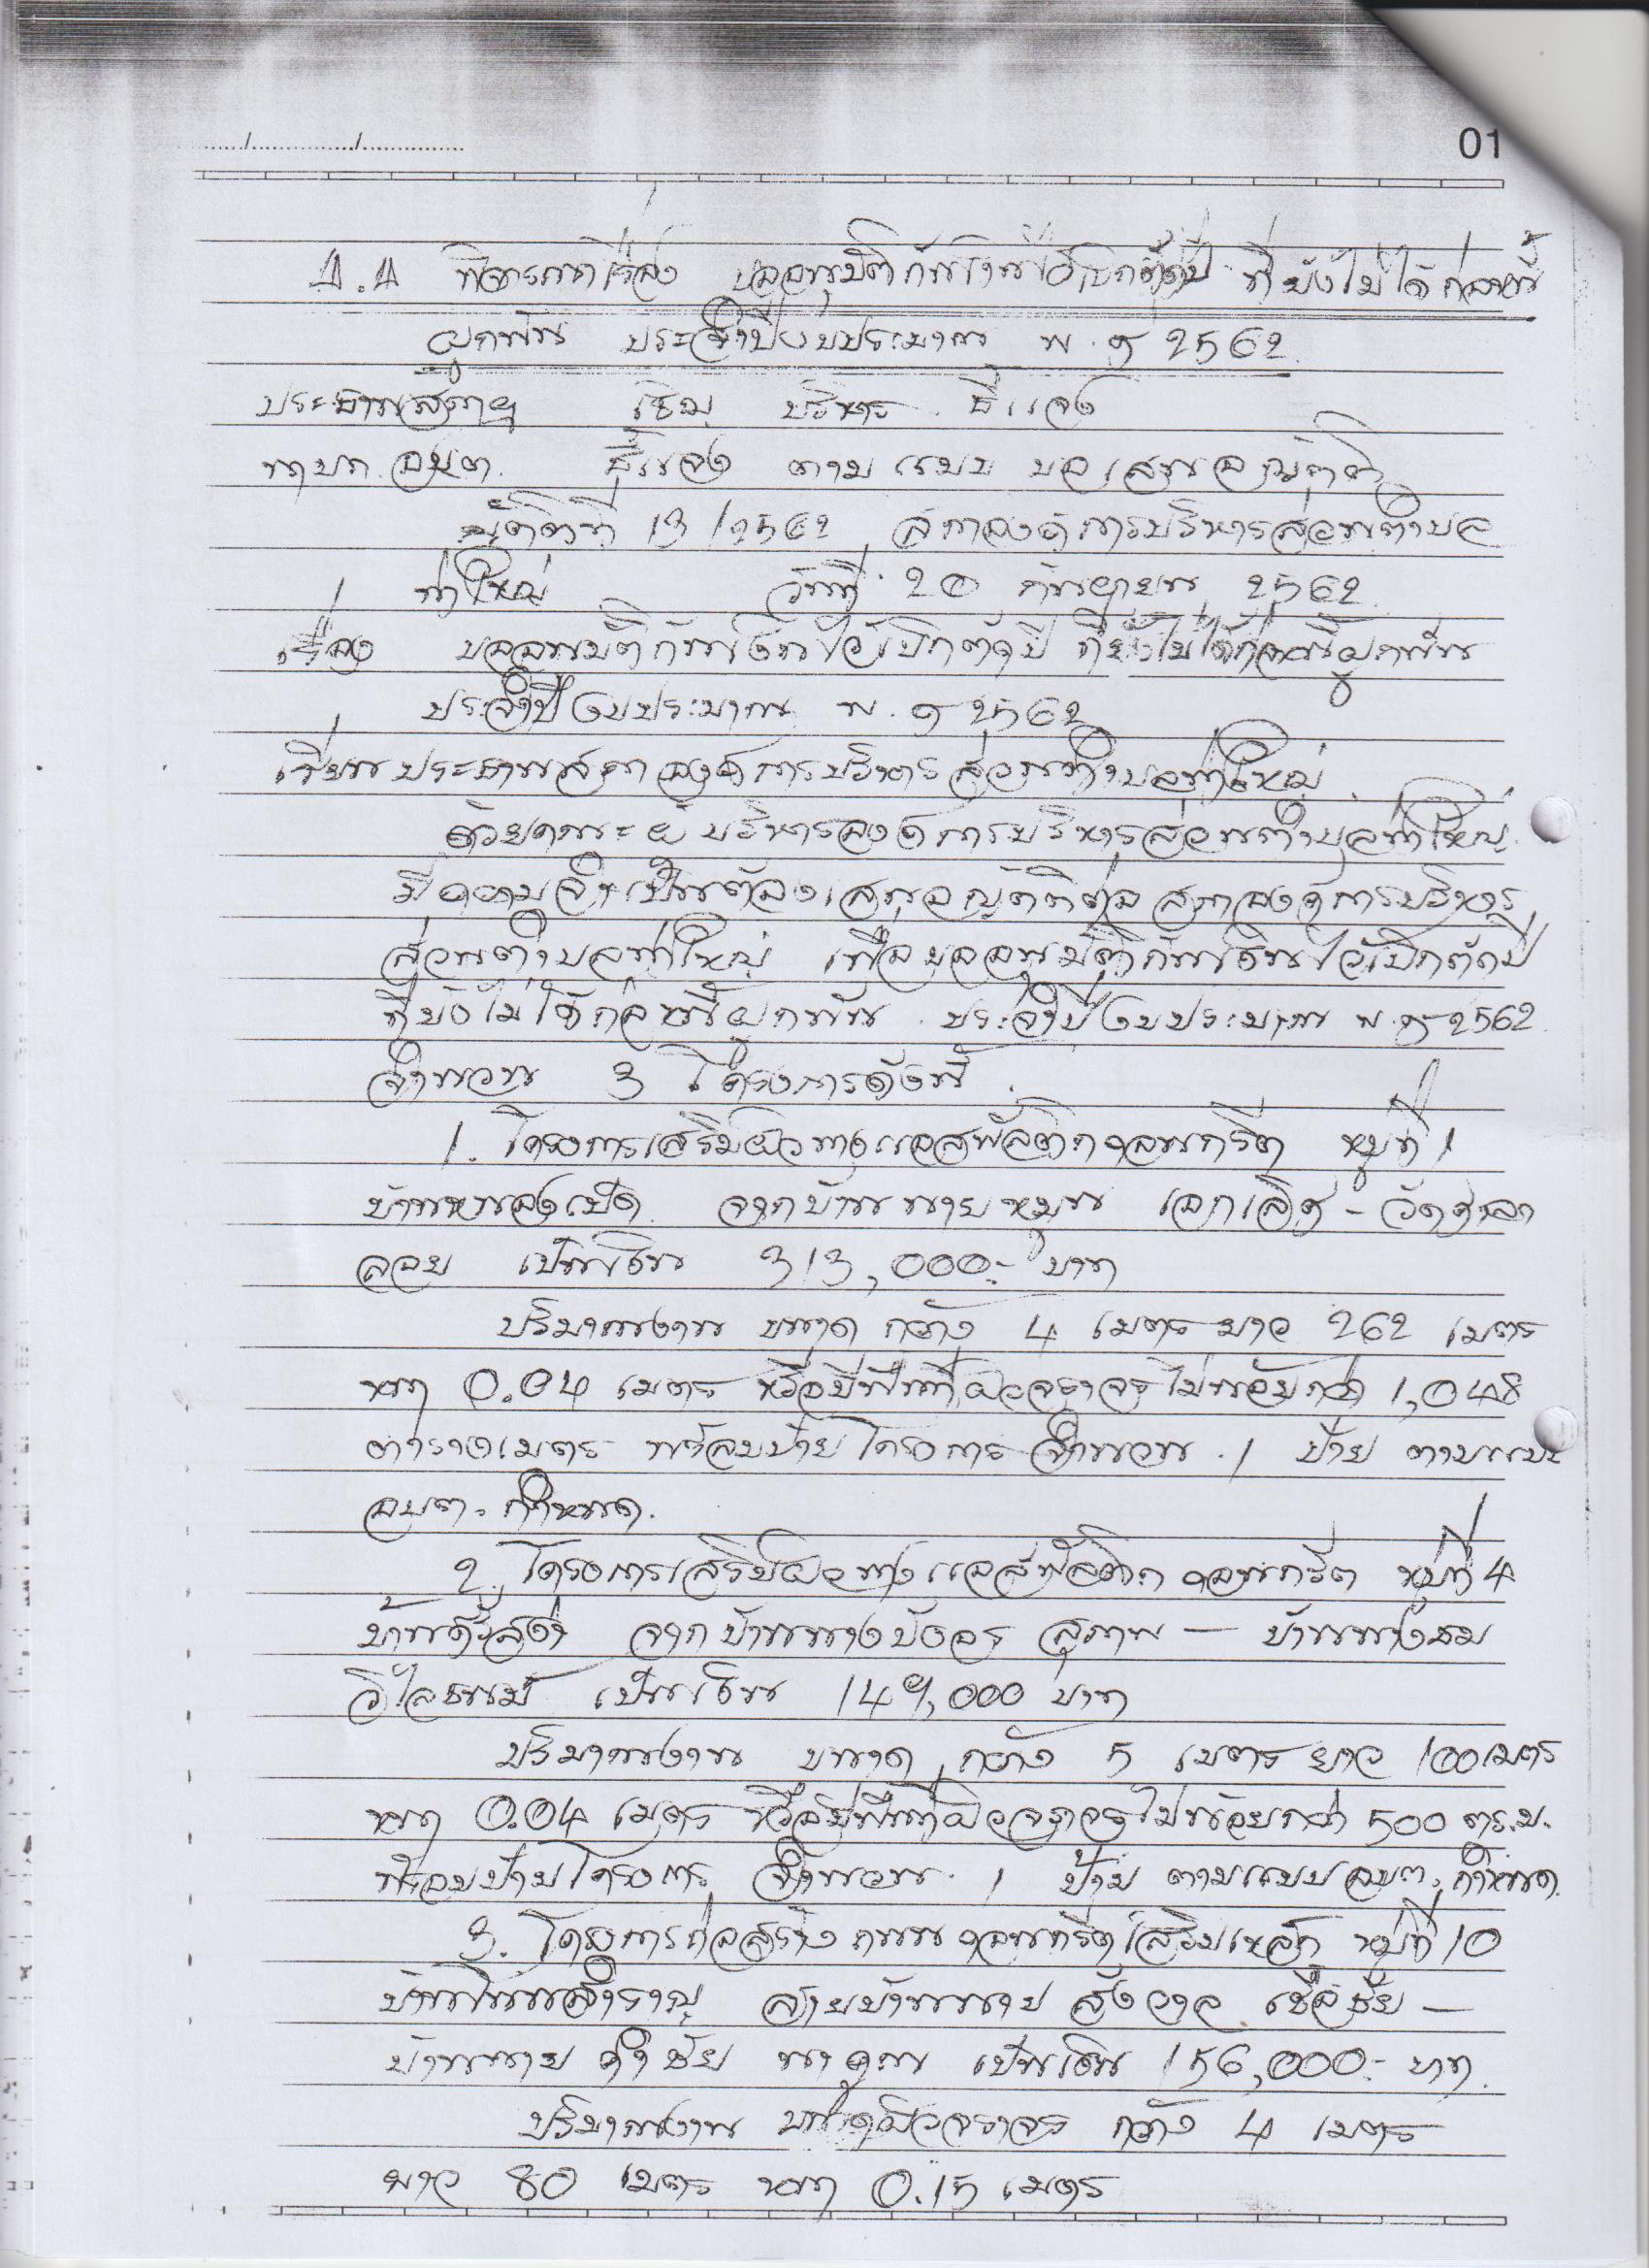 ......./............../..............
01
4.4 พิจารณาเรื่อง ขออนุมัติกันเงินไว้เบิกตัดปี ที่ยังไม่ได้ก่อหนี้
ผูกพัน ประจำปีงบประมาณ พ.ศ 2562
ประธานสภาฯ เชิญ บริหาร ชี้แจง
นายก อบต. ชี้แจง ตาม แบบ ขอเสนอญัตติ
ญัตติที่ 13/2562 สภาองค์การบริหารส่วนตำบล
ท่าใหญ่ วันที่ 20 กันยายน 2562
เรื่อง ขออนุมัติกันเงินไว้เบิกตัดปี ที่ยังไม่ได้ก่อหนี้ผูกพัน
ประจำปีงบประมาณ พ.ศ 2562
เรียนประธานสภาองค์การบริหารส่วนตำบลท่าใหญ่
ด้วยคณะผู้บริหารองค์การบริหารส่วนตำบลท่าใหญ่
มีความจำเป็นต้องเสนอญัตติต่อสภาองค์การบริหาร
ส่วนตำบลท่าใหญ่ เพื่อขออนุมัติกันเงินไว้เบิกตัดปี
ที่ยังไม่ได้ก่อหนี้ผูกพัน ประจำปีงบประมาณ พ.ศ 2562
จำนวน 3 โครงการดังนี้
1. โครงการเสริมผิวทางแอสฟัลติกคอนกรีต หมู่ที่ 1
บ้านหนองเป็ด จากบ้านนายหมุน เอกเลิศ - วัดศาลา
ลอย เป็นเงิน 313,000.- บาท
ปริมาณงาน ขนาด กว้าง 4 เมตร ยาว 262 เมตร
หนา 0.04 เมตร หรือมีพื้นที่ผิวจราจรไม่น้อยกว่า 1,048
ตารางเมตร พร้อมป้ายโครงการ จำนวน 1 ป้าย ตามแบบ
อบต. กำหนด.
2. โครงการเสริมผิวทางแอสฟัลติกคอนกรีต หมู่ที่ 4
จากบ้านนางบังอร สุภาพ - บ้านนาง
เป็นเงิน 149,000 บาท
ปริมาณงาน ขนาด กว้าง 5 เมตร ยาว 100 เมตร
หนา 0.04 เมตร หรือมีพื้นที่ผิวจราจรไม่น้อยกว่า 500 ตร.ม.
พร้อมป้ายโครงการ จำนวน 1 ป้าย ตามแบบ อบต. กำหนด.
3. โครงการก่อสร้างถนนคอนกรีตเสริมเหล็ก หมู่ที่ 10
บ้านโนนสำราญ สายบ้านนาย สังวาล เชื้อชัย -
บ้านนาย คำชัย นาคูณ เป็นเงิน 156,000.- บาท.
ปริมาณงาน ขนาดผิวจราจร กว้าง 4 เมตร
ยาว 80 เมตร หนา 0.15 เมตร